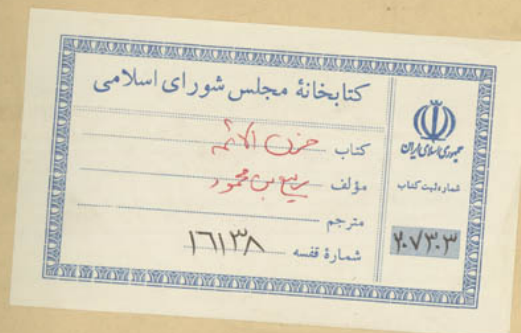 کتابخانهٔ مجلس شورای اسلامی
کتاب حزن الائمه
مؤلف ربیع بن محمود
مترجم
شمارهٔ قفسه ۱۶۱۳۸
جمهوری اسلامی ایران
شماره ثبت کتاب
۲۰۷۳۰۳